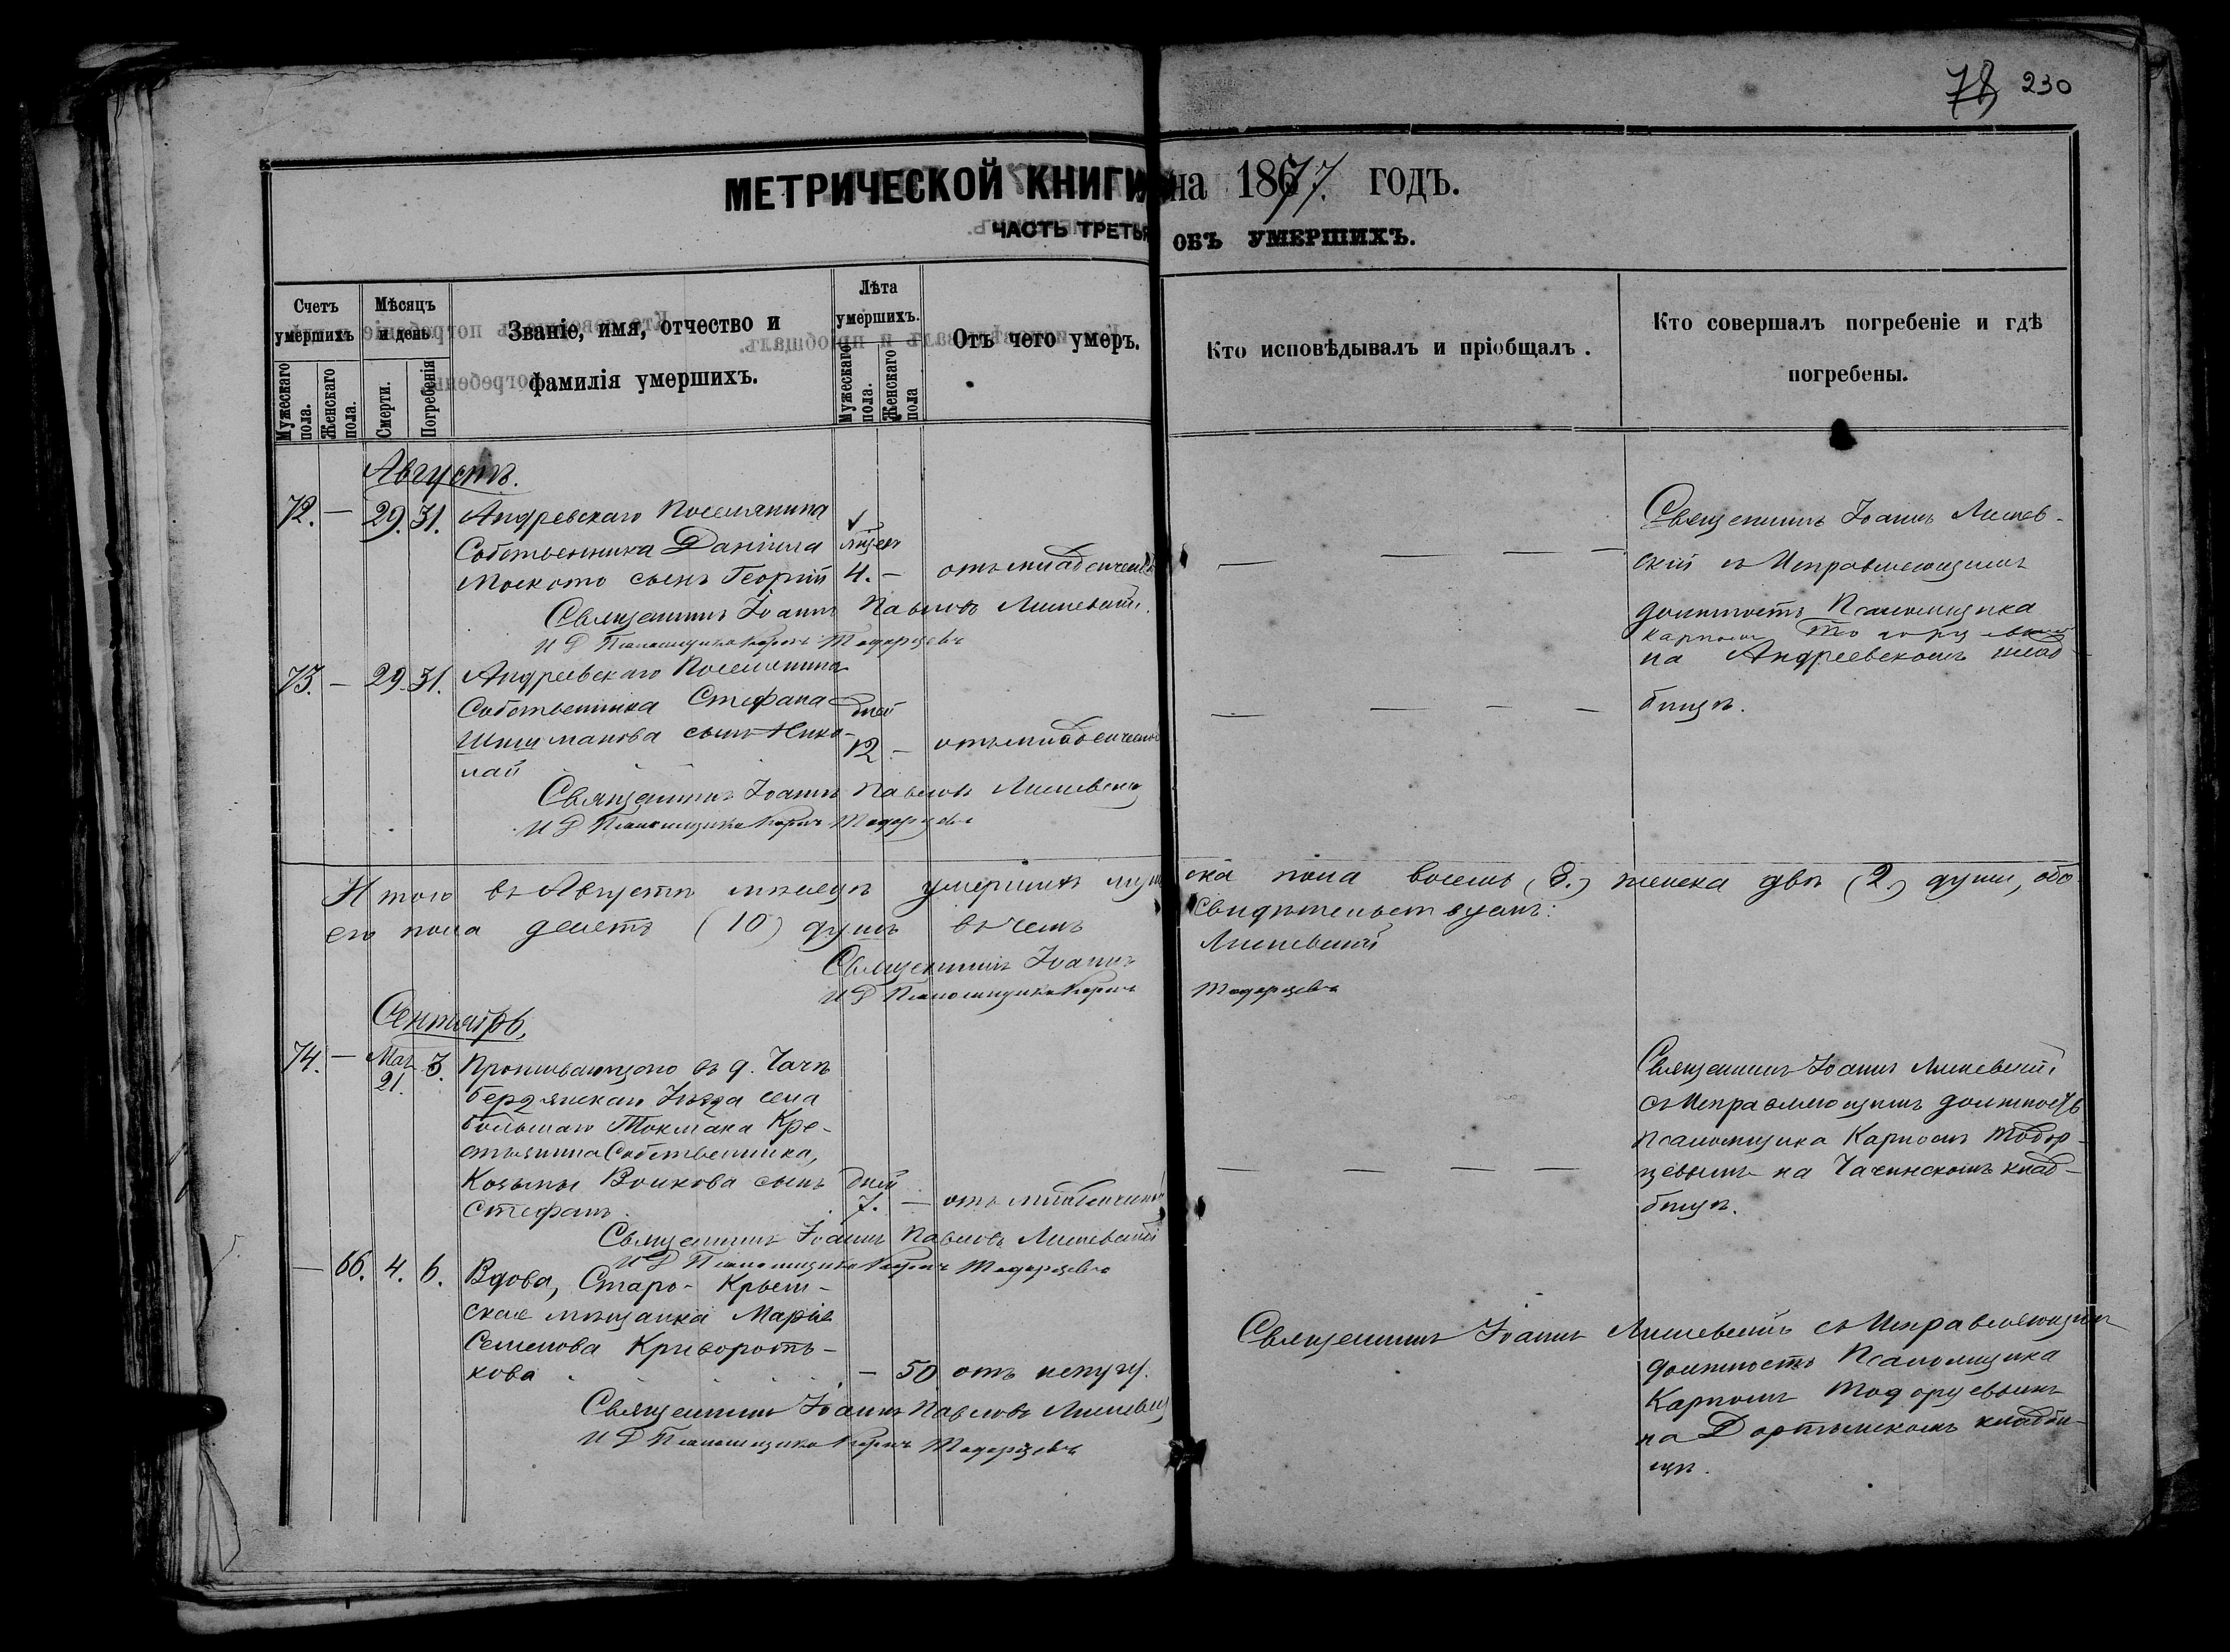 78 230
МЕТРИЧЕСКОЙ КНИГИ на 1877. ГОДЪ.
ЧАСТЬ ТРЕТЬЯ ОБЪ УМЕРШИХЪ.
Счетъ умершихъ
Мужескаго пола.
Женскаго пола.
Мѣсяцъ и день
Смерти.
Погребенія
Званіе, имя, отчество и фамилія умершихъ.
Лѣта умершихъ.
Мужескаго пола.
Женскаго пола
Отъ чего умеръ.
Кто исповѣдывалъ и пріобщалъ.
Кто совершалъ погребеніе и гдѣ погребены.
Августъ.
72. — 29. 31. Андревскаго Поселянина
Собственника Даніила
сынъ Георгій 4. —
Священникъ Іоаннъ Павловъ Лишевскій.
И Д Псаломщика Карпъ Тодорцевъ
Священникъ Іоаннъ Лишев-
скій съ Исправляющимъ
должность Псаломщика
Карпомъ
на Андреевскомъ клад-
бищѣ.
73. — 29. 31. Андреевскаго Поселянина
Собственника Стефана
Шишманова сынъ Нико-
лай
дней 12 —
Священникъ Іоаннъ Павловъ Лишевскій
И Д Псаломщика Карпъ Тодорцевъ
Итого въ Августѣ мѣсяцѣ умершихъ муж ска пола восемь (8.) женска двѣ (2.) души, обо-
его пола десять (10) душъ въ чемъ свидѣтельствуемъ:
Священникъ Іоаннъ Лишевскій
И Д Псаломщика Карпъ Тодорцевъ
Сентябрь,
74. — 21. 3. Проживающаго въ д. Чачѣ
Бердянскаго Уѣзда села
большаго Токмака Кре-
стьянина Собственника,
Козьмы Волкова сынъ
Стефанъ.
дней 7. —
Священникъ Іоаннъ Павловъ Лишевскій
И Д Псаломщика Карпъ Тодорцевъ
Священникъ Іоаннъ Лишевскій
съ Исправляющимъ должность
Псаломщика Карпомъ Тодор-
цевымъ на Чачинскомъ клад-
бищѣ.
— 66. 4. 6. Вдова, Старо-Крым-
ская мѣщанка Марія
Семенова Криворотъ-
кова — 50 отъ испугу.
Священникъ Іоаннъ Павловъ
И Д Псаломщика Карпъ Тодорцевъ
Священникъ Іоаннъ Лишевскій съ Исправляющимъ
должность Псаломщика
Карпомъ Тодорцевымъ
на кладби-
щѣ.